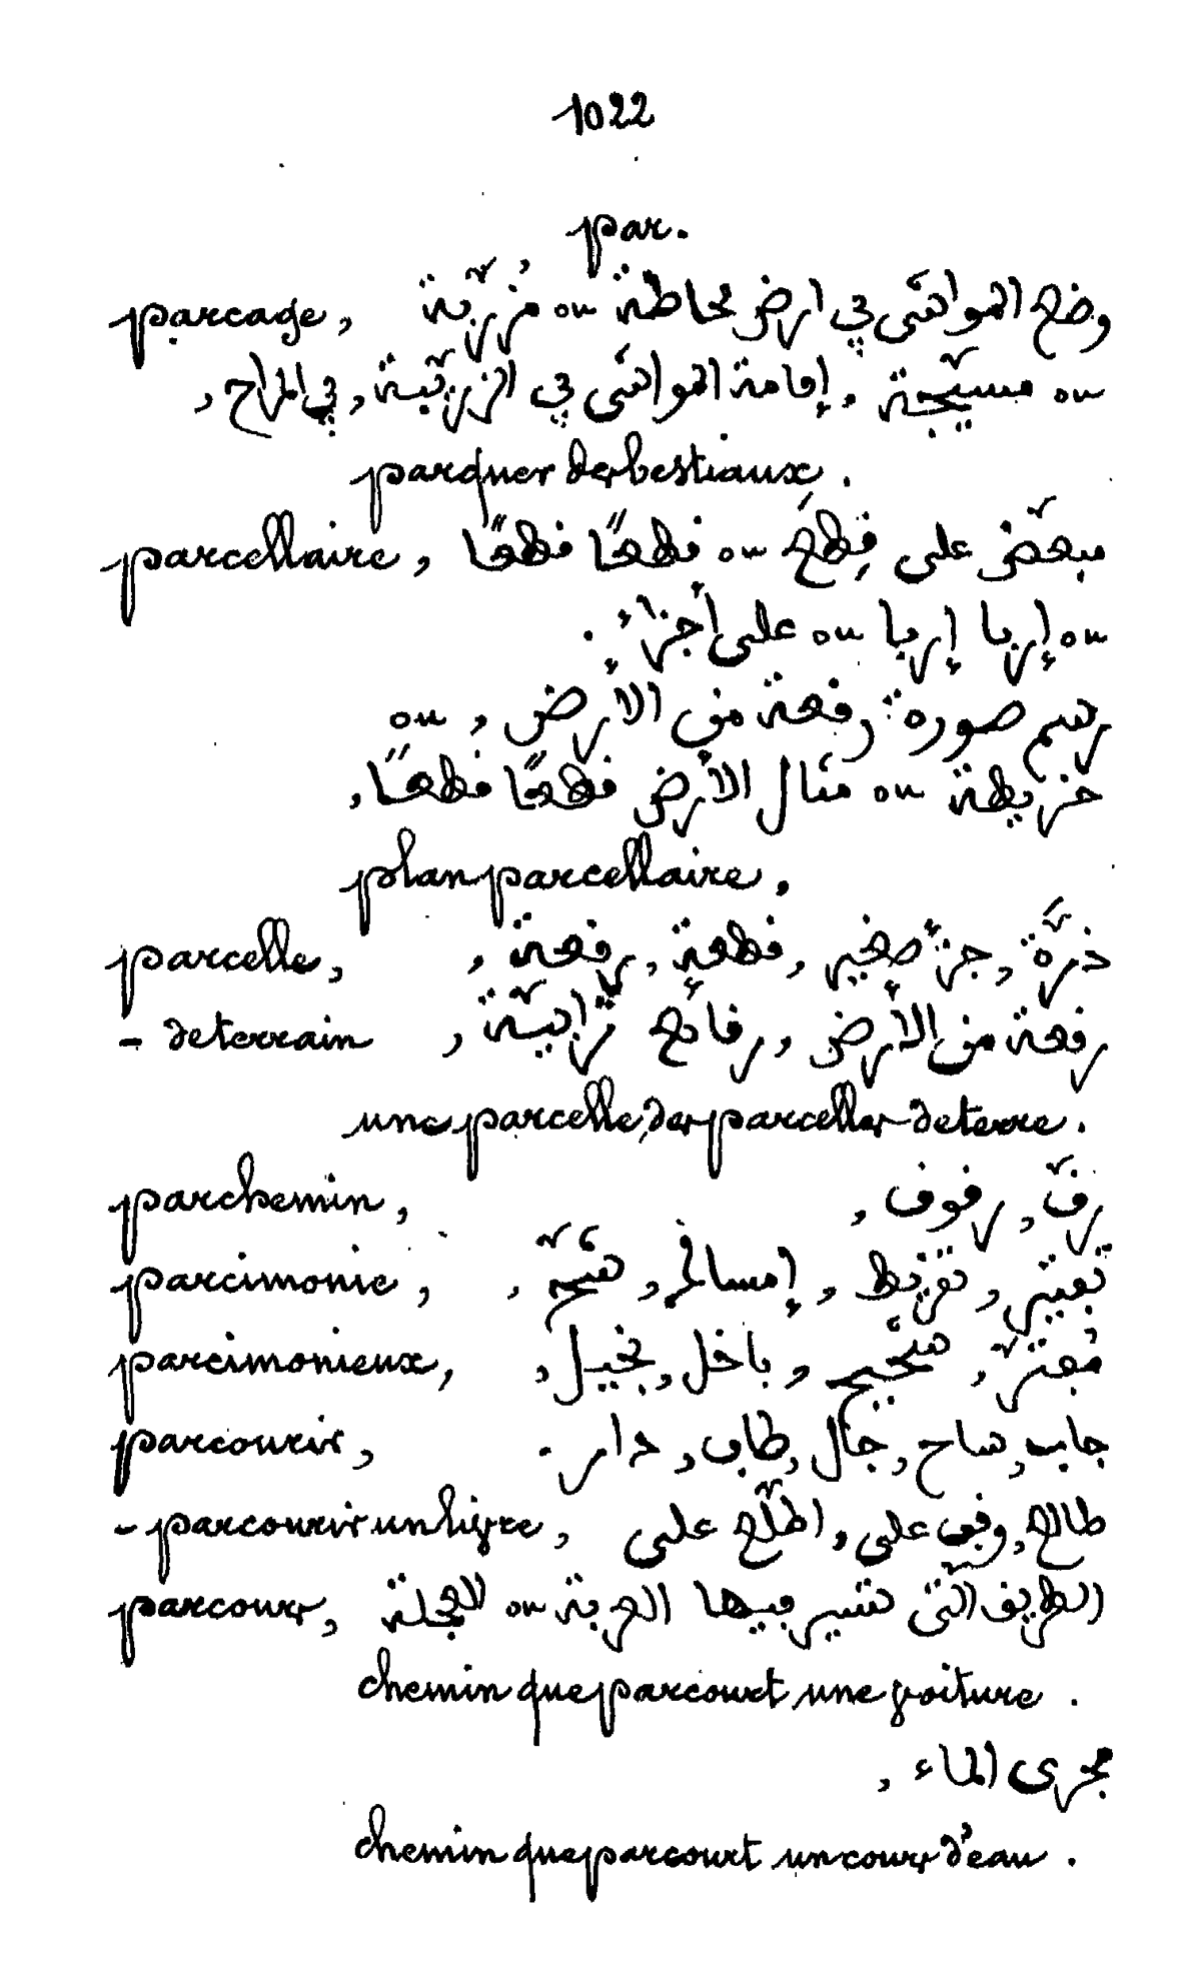 1022
par.
parcage, وضع المواشى في ارض محاطة ou مُزرّبة
ou مسيّجة, إقامة المواشى في الزريّبة, في المراح,
parquer des bestiaux.
parcellaire, مبعّض على قِطَع ou قطعًا قطعًا
ou إربا إربا ou على أجزاءٍ.
رسم صورة رقعة من الأرض, ou
خريطة ou مثال الأرض قطعًا قطعًا,
plan parcellaire.
parcelle, ذرّة, جزءٌ صغير, قطعة, رقعة,
- de terrain رقعة من الأرض, رقائع ترابيّة,
une parcelle, des parcelles de terre.
parchemin, رقّ, رقوق,
parcimonie, تقتير, تقريط, إمساك, شحّة,
parcimonieux, مُقتّر, شحيح, باخل, بخيل,
parcourir, جاب, ساح, جال, طاف, دار.
- parcourir un livre, طالع, وقف على, اطّلع على
parcours, الطريق الّتى تسير فيها العربة ou العجلة
chemin que parcourt une voiture.
مجرى الماء,
chemin que parcourt un cours d'eau.